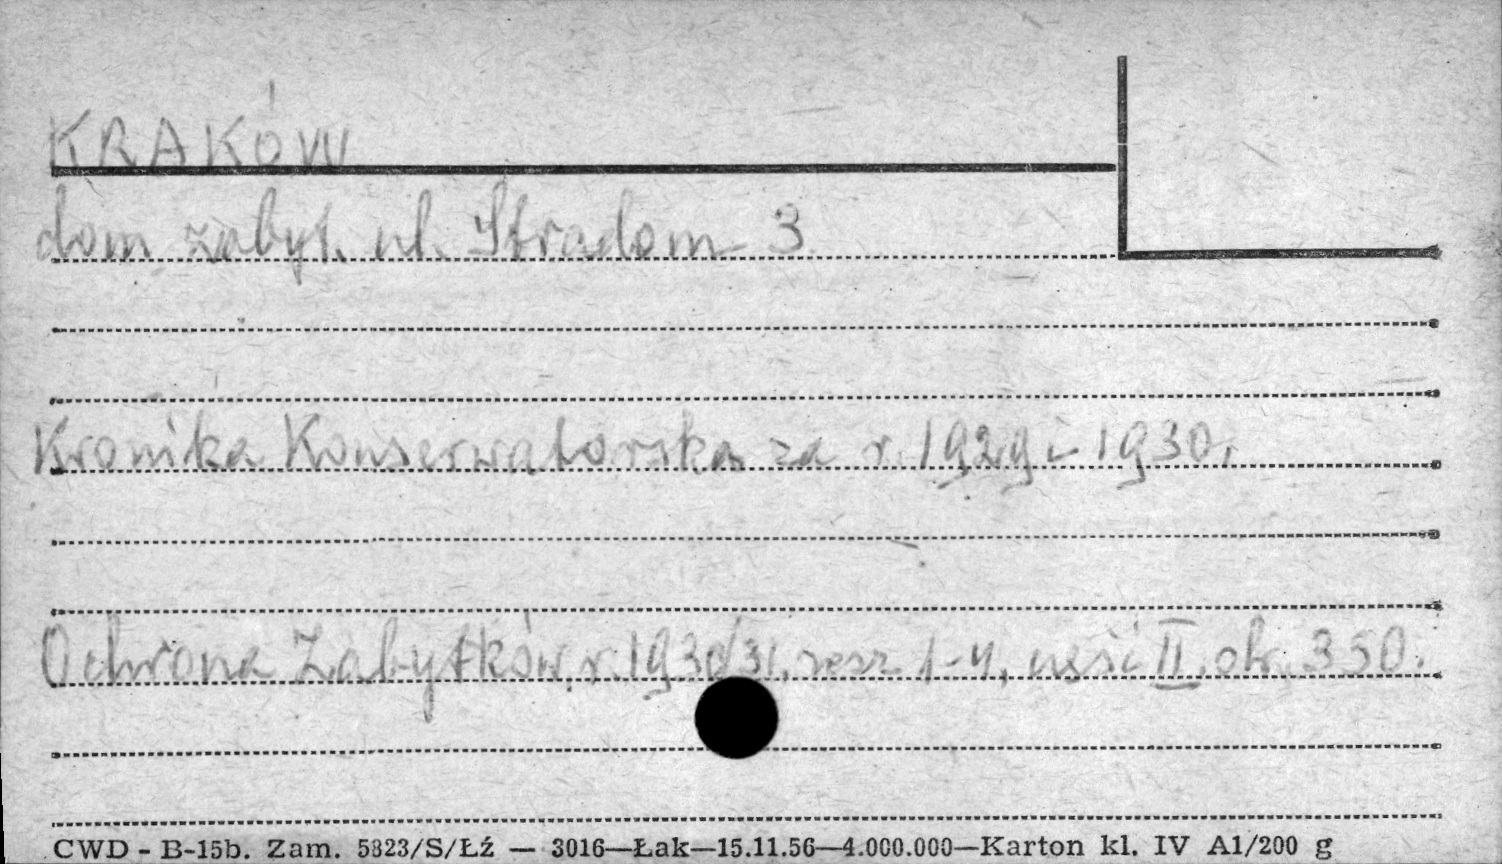 KRAKÓW
dom zabyt. ul. Stradom 3
Kronika Konserwatorska za r. 1929 i 1930.
Ochrona Zabytków, r. 1930/31, zesz. 1-4, część II, 350.
CWD - B-15b. Zam. 5823/S/Łź — 3016—Łak—15.11.56—4.000.000—Karton kl. IV A1/200 g